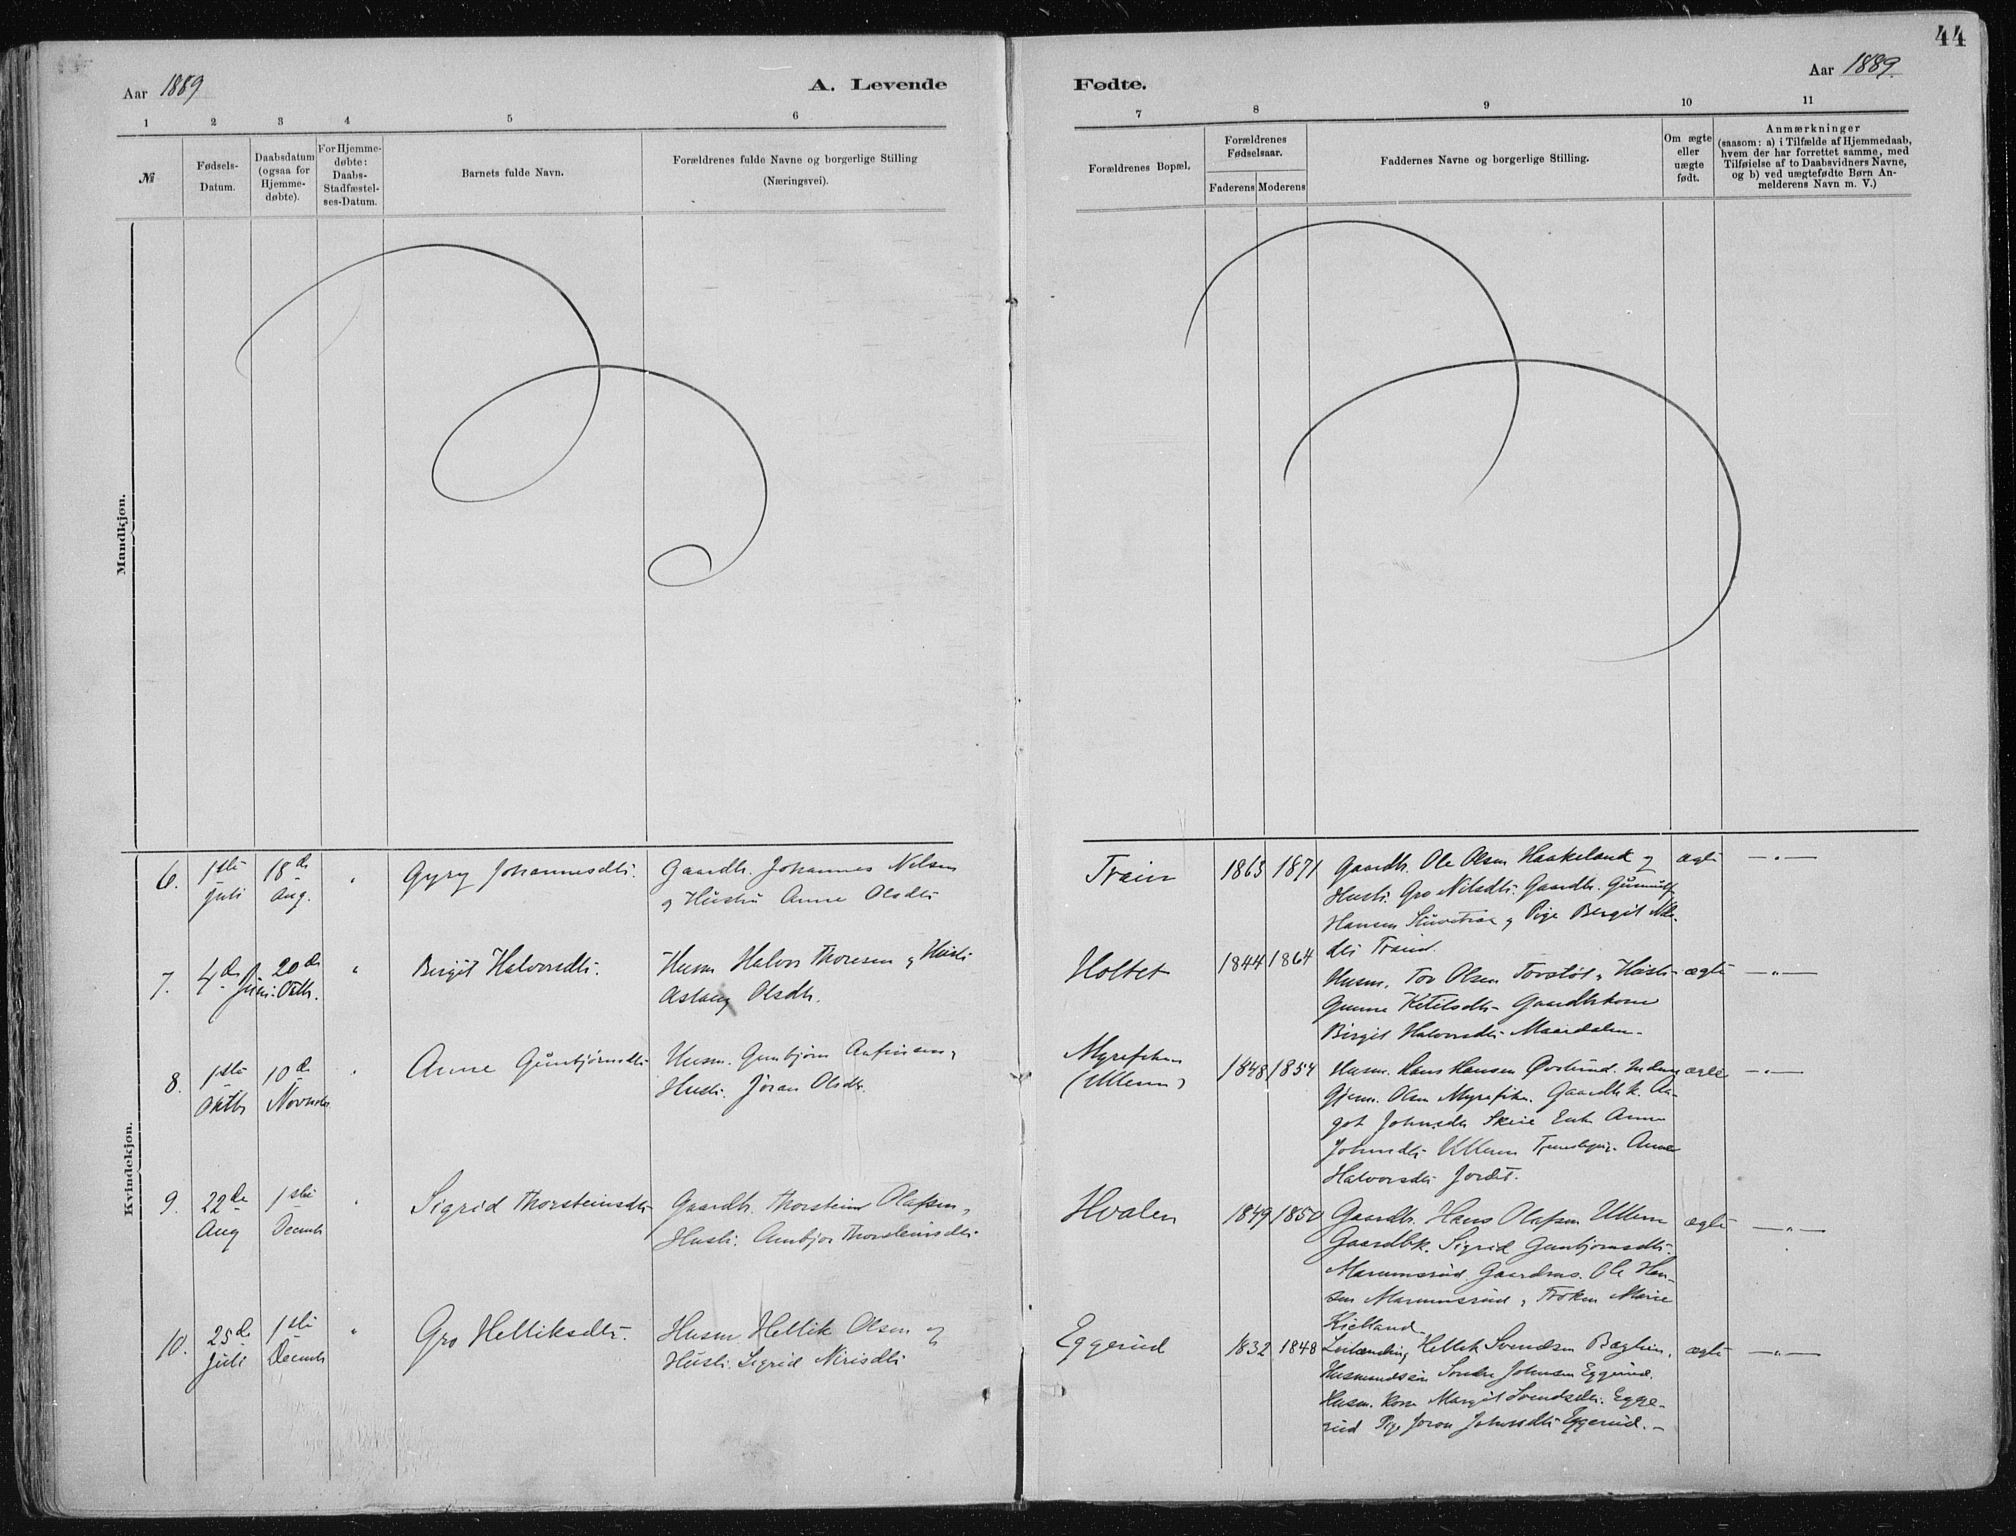 44
Aar 1889
A. Levende
Fødte.
Aar 1889.
1 2 3 4 5 6 7 8 9 10 11
№
Fødsels-
Datum.
Daabsdatum
(ogsaa for
Hjemme-
døbte).
For Hjemme-
døbte:
Daabs-
Stadfæstel-
ses-Datum.
Barnets fulde Navn.
Forældrenes fulde Navne og borgerlige Stilling
(Næringsvei).
Forældrenes Bopæl.
Forældrenes
Fødselsaar.
Faderens Moderens
Faddernes Navne og borgerlige Stilling.
Om ægte
eller
uægte
født.
Anmærkninger
(saasom: a) i Tilfælde af Hjemmedaab,
hvem der har forrettet samme, med
Tilføielse af to Daabsvidners Navne,
og b) ved uægtefødte Børn An-
melderens Navn m. V.)
Mandkjøn.
Kvindekjøn.
6.
1ste
Juli
18de
Aug.
"
Gyry Johannesdtr.
Gaardbr. Johannes Nilsen
og Hustru Anne Olsdtr
Traim
1863 1871
Gaardbr. Ole Olsen Haakeland og
Hustr. Gro Nilsdtr. Gaardbr. Gunnulf
Hansen og Pige Bergit Nils-
dtr Traim.
ægte
—"—
7.
4de
Juni
20de
Oktb.
"
Birgit Halvorsdtr.
Husm. Halvor Thoresen og Hustr.
Aslaug Olsdtr.
Holtet
1844 1864
Husm. Tov Olsen Hustr.
Gunne Ketilsdtr. Gaardbrkone
Birgit Halvorsdtr. Maardalen.
ægte
—"—
8.
1ste
Oktb
10de
Novmbr
"
Anne Gunbjørnsdtr.
Husm. Gunbjørn
Hustr. Jøran Olsdtr.
(Ullern)
1848 1854
Husm. Hans Hansen
Olsen Gaardbrk. Aa-
got Johnsdtr Skeie Enke Anne
Johnsdtr Ullern Anne
Halvorsdtr Jordet.
ægte
—"—
9.
22de
Aug
1ste
Decmbr
"
Sigrid Thorsteinsdtr
Gaardbr. Thorstein Olafsen,
Hustr. Anbjør Thorsteinsdtr.
Hvalen
1849 1850
Gaardbr. Hans Olafsen Ullern
Gaardbk. Sigrid Gunbjørnsdtr.
Marumsrud. Gaardms. Ole Han-
sen Marumsrud, Frøken Marie
Kielland.
ægte
—"—
10.
25de
Juli
1ste
Decmbr
"
Gro Helliksdtr.
Husm Hellik Olsen og
Hustr. Sigrid Nirisdtr.
Eggerud
1832 1848
Hellik Svendsen
Husmandssøn Søndre Johnsen Eggerud.
Husm. kone Margit Svendsdtr. Egge-
rud Pige Jøron Johnsdtr Eggerud.—
ægte
—"—